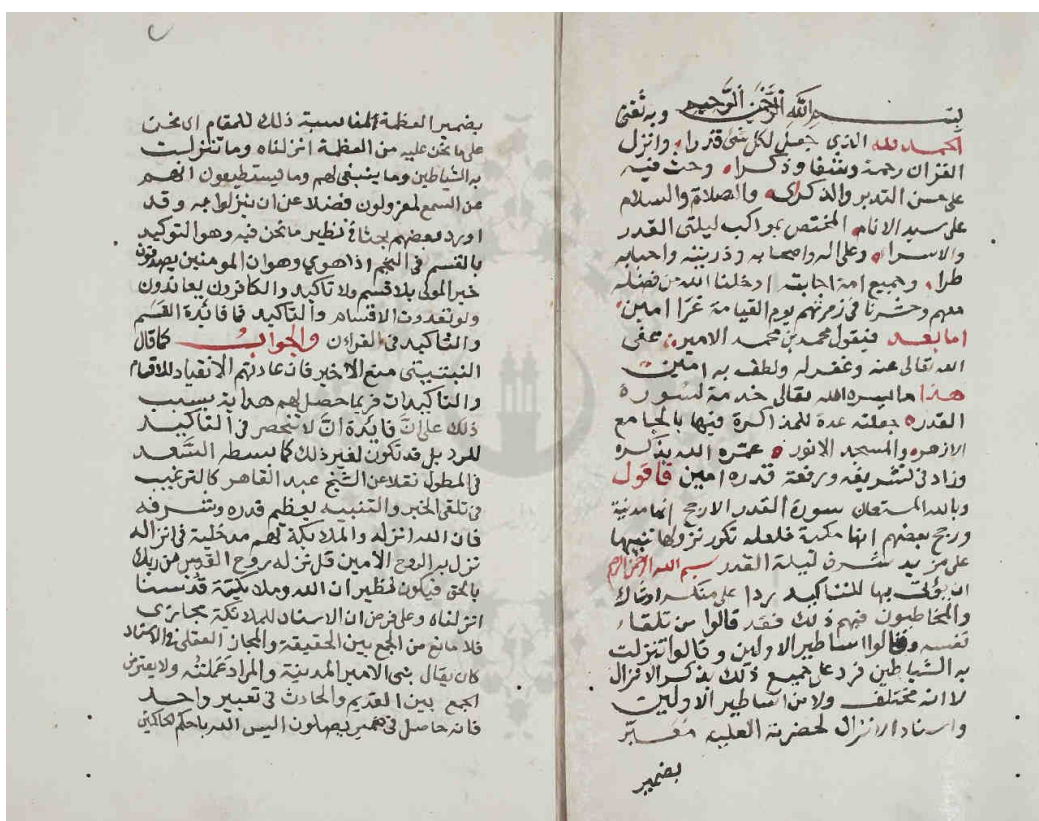 بسم الله الرحمن الرحيم وبه ثقتى
الحمد لله الذى جعل لكل شئ قدرا، وانزل
القران رحمة وشفا وذكرا، وحث فيه
على حسن التدبر والذكرى، والصلاة والسلام
على سيد الانام، المختص بمواكب ليلتى القدر
والاسرا، وعلى اله واصحابه وذريته واحبابه
طرا، وجميع امة اجابته ادخلنا الله من فضله
معهم وحشرنا فى زمرتهم يوم القيامة غرا امين
اما بعد فيقول محمد بن محمد الامير عفى
الله تعالى عنه وغفر له ولطف به امين
هذا ما يسره الله تعالى خدمة لسورة
القدر جعلته عدة للمذاكرة فيها بالجامع
الازهر والمسجد الانور عمره الله بذكره
وزاد فى تشريفه ورفعة قدره امين فاقول
وبالله المستعان سورة القدر الارجح انها مدنية
ورجح بعضهم انها مكية فلعله تكرر نزولها تنبيها
على مزيد شرف ليلة القدر بسم الله الرحمن الرحيم
ان يؤتى بها للتاكيد ردا على منكر او شاك
والمخاطبون فيهم ذلك فقد قالوا من تلقاء
نفسه وقالوا اساطير الاولين وقالوا تنزلت
به الشياطين فرد على جميع ذلك بذكر الانزال
لا انه مختلف ولا من اساطير الاولين
واسناد الانزال لحضرته العلية معبر
بضمير
بضمير العظمة المناسبة ذلك للمقام اى نحن
على ما نحن عليه من العظمة انزلناه وما تنزلت
به الشياطين وما ينبغى لهم وما يستطيعون انهم
عن السمع لمعزولون فضلا عن ان ينزلوا به وقد
اورد بعضهم بحثا نظير ما نحن فيه وهو التوكيد
بالقسم فى النجم اذا هوى وهو ان المومنين يصدقون
خبر المولى بلا قسم ولا تاكيد والكافرون يعاندون
ولو تعددت الاقسام والتاكيد فما فائدة القسم
والتاكيد فى القران والجواب كما قال
النبتيتى منع الاخير فان عادتهم الانقياد للاقسام
والتاكيدات فربما حصل لهم هداية بسبب
ذلك على ان فايدة ان لا تنحصر فى التاكيد
للرد بل قد تكون لغير ذلك كما بسطه السعد
فى المطول نقلا عن الشيخ عبد القاهر كالترغيب
فى تلقى الخبر والتنبيه بعظم قدره وشرفه
فان الله انزله والملايكة لهم مدخلية فى انزاله
نزل به الروح الامين قل نزله روح القدس من ربك
بالحق فيكون نظير ان الله وملايكته
انزلناه وعلى فرض ان الاسناد للملائكة مجازى
فلا مانع من الجمع بين الحقيقة والمجاز العقلى فى الاسناد
كان يقال بنى الامير المدينة والمراد عملته ولا يعترض
الجمع بين القديم والحادث فى تعبير واحد
فانه حاصل فى ضمير يصلون اليس الله باحكم الحاكمين